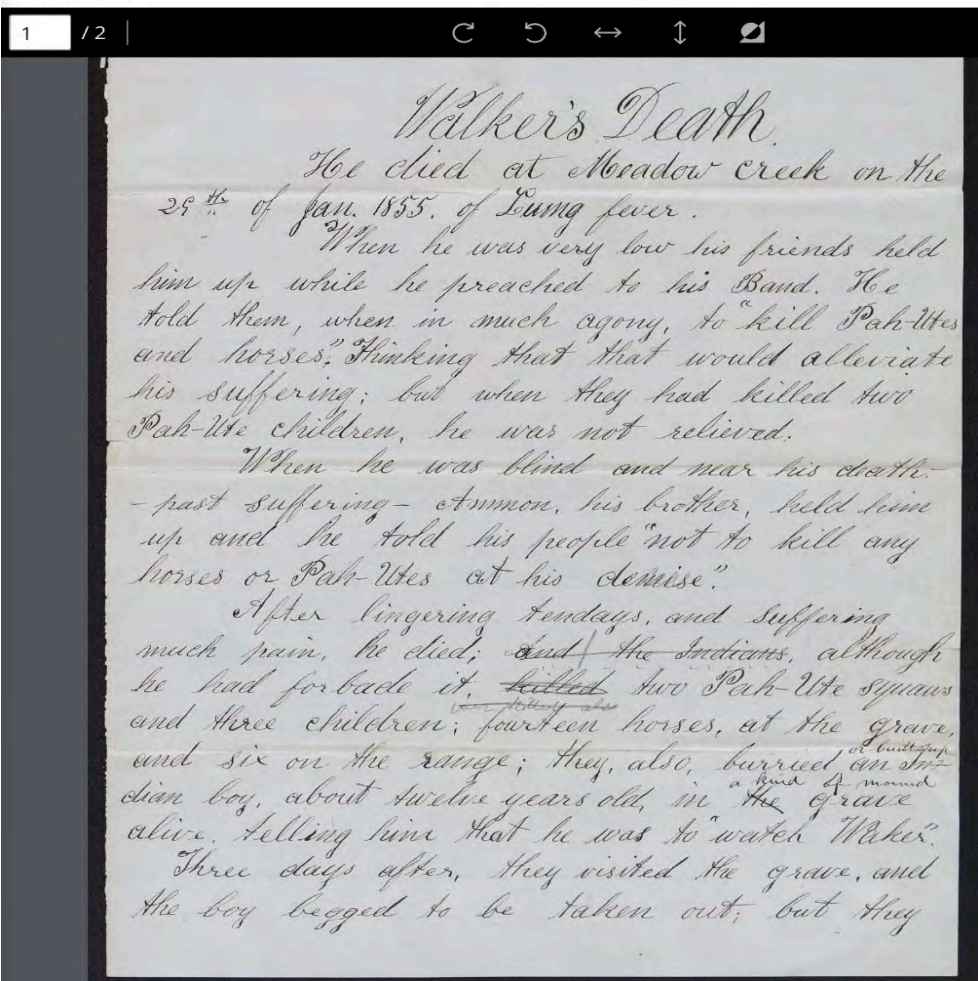 1 / 2
Walker's Death.
He died at Meadow creek on the
29th of Jan. 1855. of Lung fever.
When he was very low his friends held
him up while he preached to his Band. He
told them, when in much agony, to "kill Pah-Utes
and horses". Thinking that that would alleviate
his suffering; but when they had killed two
Pah-Ute children, he was not relieved.
When he was blind and near his death-
- past suffering - Ammon, his brother, held him
up and he told his people "not to kill any
horses or Pah-Utes at his demise".
After lingering tendays, and suffering
much pain, he died; and the Indians, although
he had forbade it, killed two Pah-Ute squaws
were killed also
and three children; fourteen horses, at the grave,
and six on the range; they, also, burried an In-
or built up
a kind of mound
dian boy, about twelve years old, in the grave
alive, telling him that he was to "watch Waker".
Three days after, they visited the grave, and
the boy begged to be taken out; but they